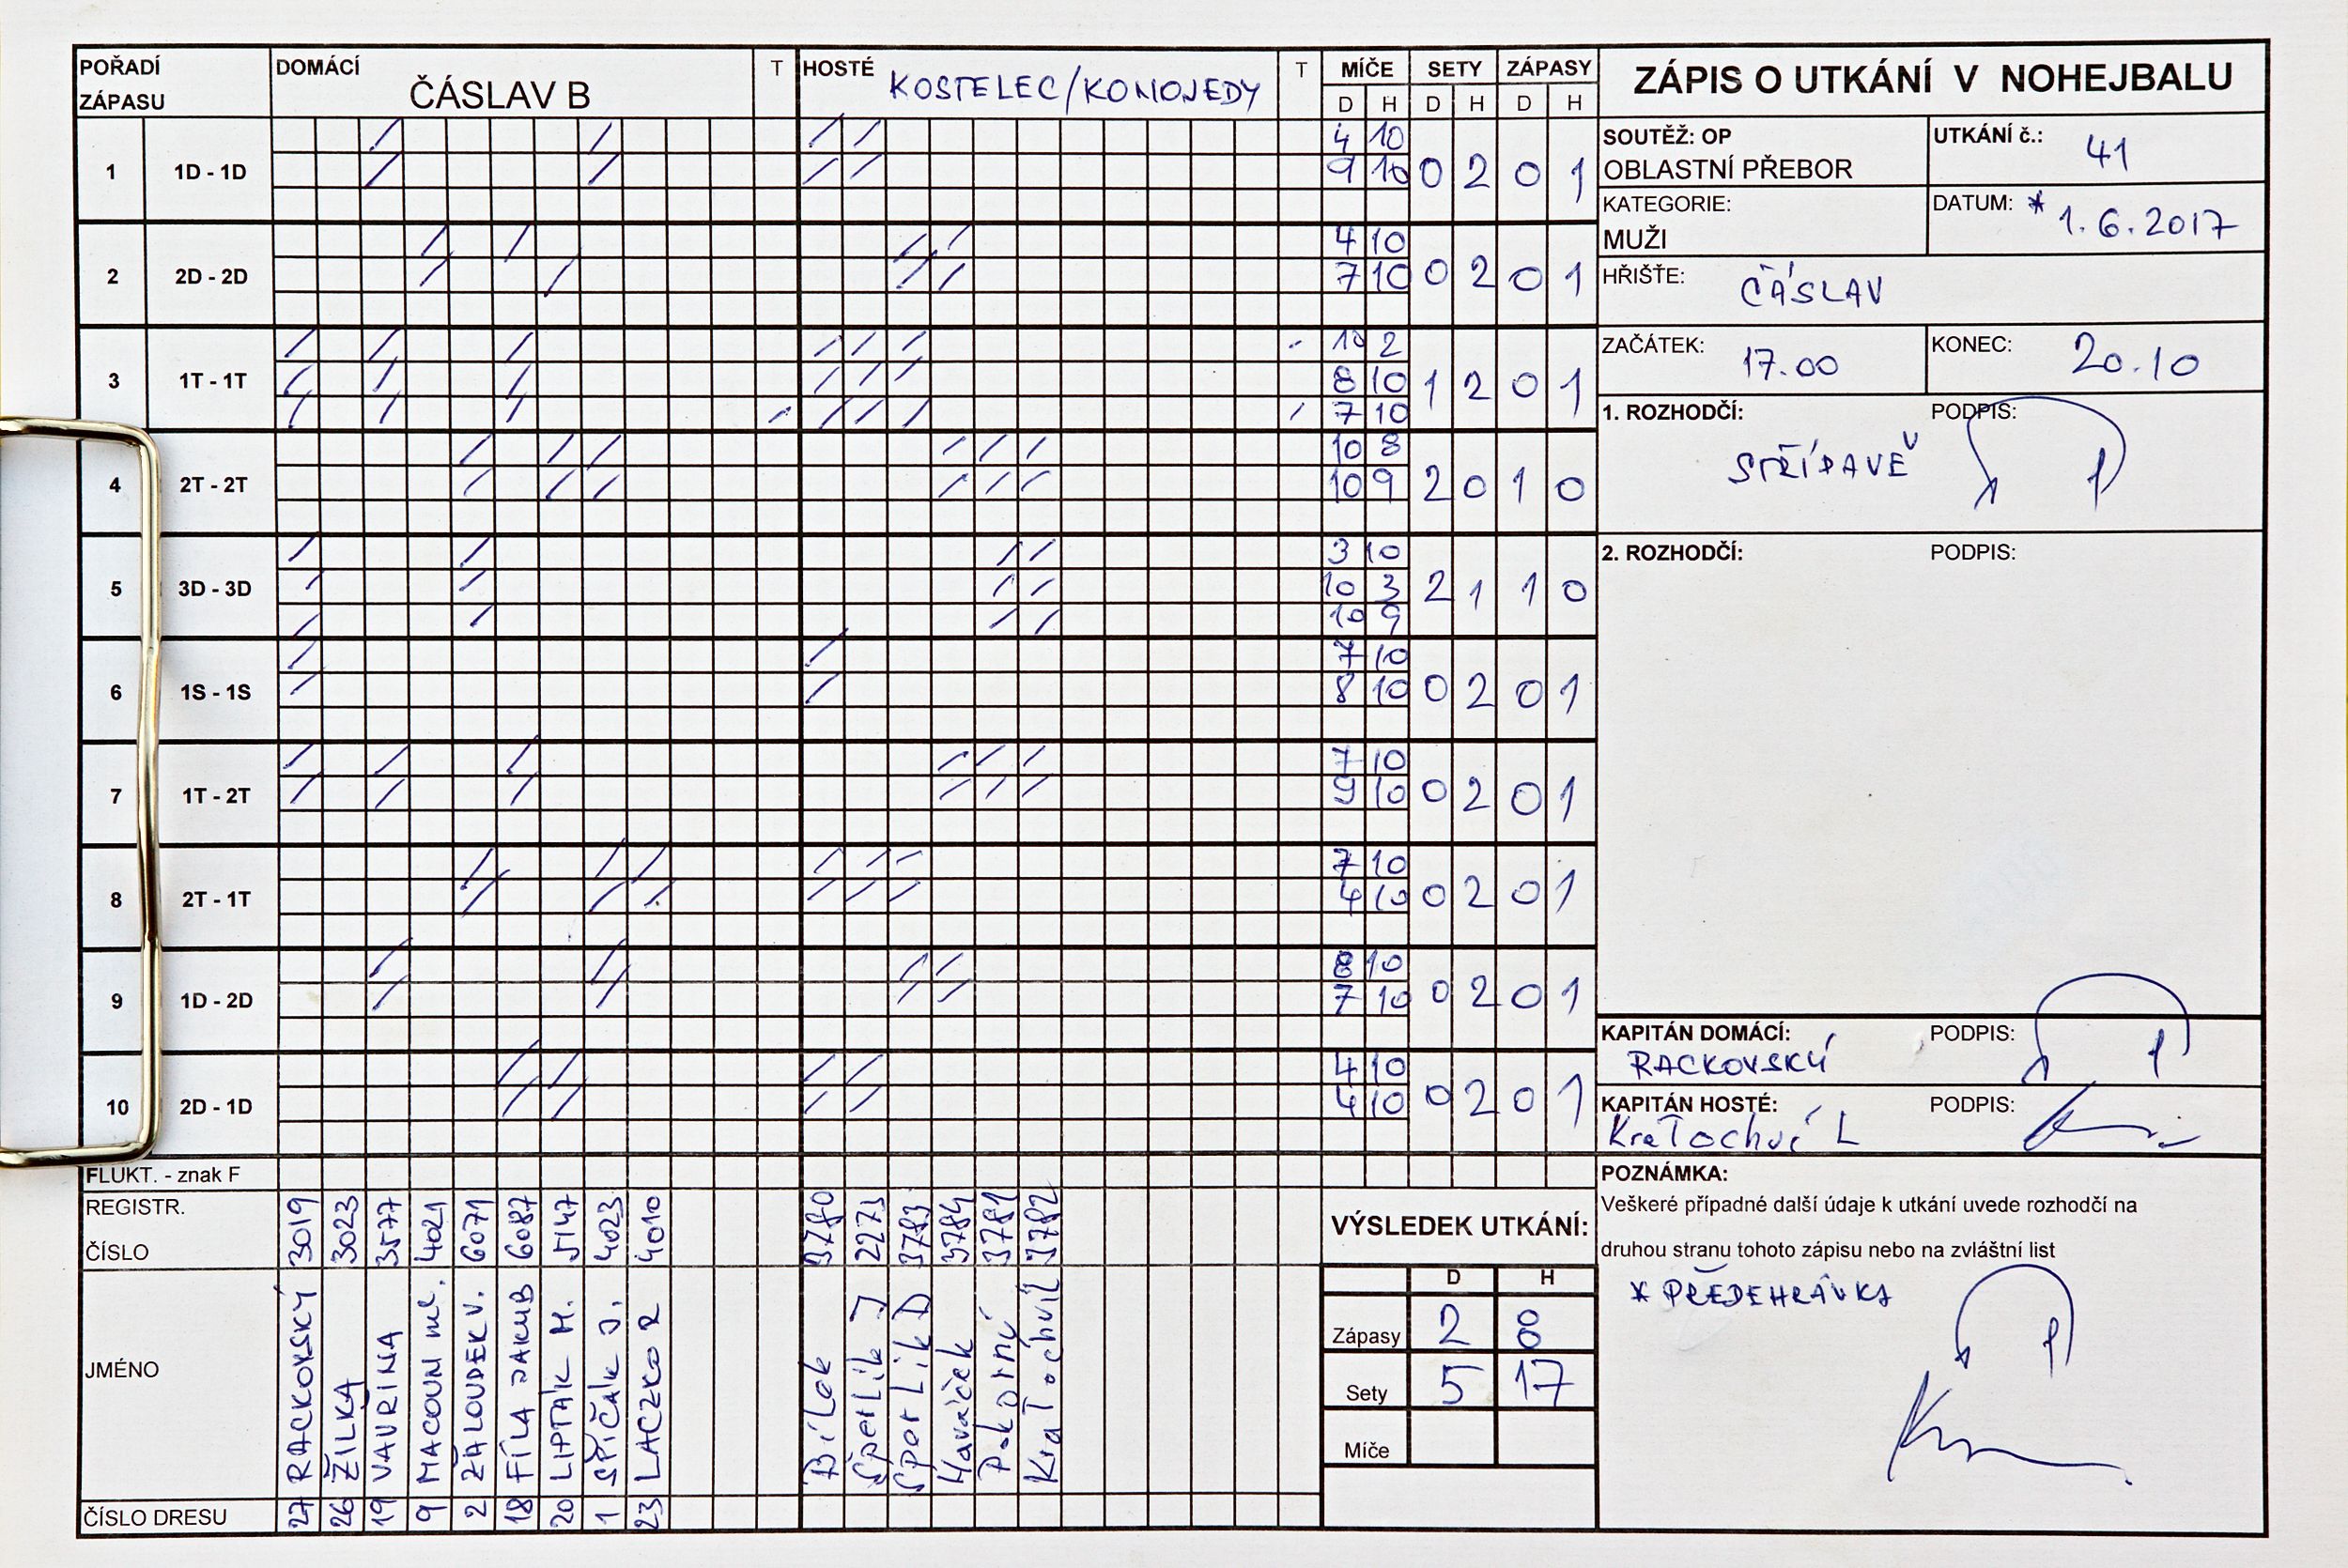 POŘADÍ ZÁPASU DOMÁCÍ ČÁSLAV B T HOSTÉ KOSTELEC/KOMOJEDY T MÍČE SETY ZÁPASY
D H D H D H
1 1D - 1D 4 10 0 2 0 1
9 10
2 2D - 2D 4 10 0 2 0 1
7 10
3 1T - 1T 10 2 1 2 0 1
8 10
7 10
4 2T - 2T 10 8 2 0 1 0
10 9
5 3D - 3D 3 10 2 1 1 0
10 3
10 9
6 1S - 1S 7 10 0 2 0 1
8 10
7 1T - 2T 7 10 0 2 0 1
9 10
8 2T - 1T 7 10 0 2 0 1
4 10
9 1D - 2D 8 10 0 2 0 1
7 10
10 2D - 1D 4 10 0 2 0 1
4 10
FLUKT. - znak F
REGISTR. ČÍSLO 3019 3023 3577 4021 6071 6087 5147 4023 4010 3780 2273 3783 3784 3781 3782
JMÉNO RACKOVSKÝ ŽILKA VAVŘINA MACOUN ml. ŽALOUDEK V. FÍLA JAKUB LIPTÁK M. ŠPIČÁK J. LACZKO R Bílek Šperlík J Šperlík D Havaček Pokorný Kratochvíl
ČÍSLO DRESU 27 26 19 9 2 18 20 1 23
ZÁPIS O UTKÁNÍ V NOHEJBALU
SOUTĚŽ: OP
OBLASTNÍ PŘEBOR
UTKÁNÍ č.: 41
KATEGORIE:
MUŽI
DATUM: * 1.6.2017
HŘIŠŤE: ČÁSLAV
ZAČÁTEK: 17.00
KONEC: 20.10
1. ROZHODČÍ: PODPIS:
2. ROZHODČÍ: PODPIS:
KAPITÁN DOMÁCÍ: PODPIS:
RACKOVSKÝ
KAPITÁN HOSTÉ: PODPIS:
Kratochví L
VÝSLEDEK UTKÁNÍ:
D H
Zápasy 2 8
Sety 5 17
Míče
POZNÁMKA:
Veškeré případné další údaje k utkání uvede rozhodčí na
druhou stranu tohoto zápisu nebo na zvláštní list
* PŘEDEHRÁVKA